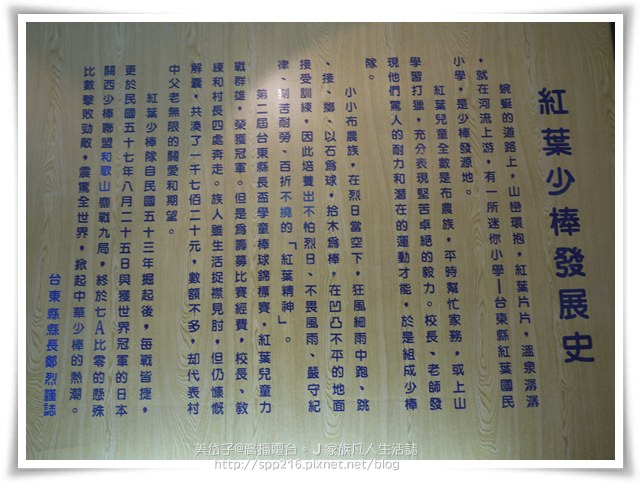 紅葉少棒發展史
蜿蜒的道路上，山巒環抱，紅葉片片，溫泉潺潺
，就在河流上游，有一所迷你小學—台東縣紅葉國民
小學，是少棒發源地。
紅葉兒童全數是布農族，平時幫忙家務，或上山
學習打獵，充分表現堅苦卓絕的毅力。校長、老師發
現他們驚人的耐力和潛在的運動才能，於是組成少棒
隊。
小小布農族，在烈日當空下，狂風細雨中跑、跳
、接、擲、以石為球，拾木為棒，在凹凸不平的地面
接受訓練，因此培養出不怕烈日、不畏風雨、嚴守紀
律、刻苦耐勞、百折不撓的「紅葉精神」。
第二屆台東縣長盃學童棒球錦標賽，紅葉兒童力
戰群雄，榮獲冠軍。但是為籌募比賽經費，校長、教
練和村長四處奔走。族人雖生活捉襟見肘，但仍慷慨
解囊，共湊了一千七佰二十元，數額不多，却代表村
中父老無限的關愛和期望。
紅葉少棒隊自民國五十三年掘起後，每戰皆捷，
更於民國五十七年八月二十五日與獲世界冠軍的日本
關西少棒聯盟和歌山鏖戰九局，終於七A比零的懸殊
比數擊敗勁敵，震驚全世界，掀起中華少棒的熱潮。
台東縣縣長鄭烈謹誌
美岱子@闇描電台。J家族凡人生活誌
http://spp216.pixnet.net/blog